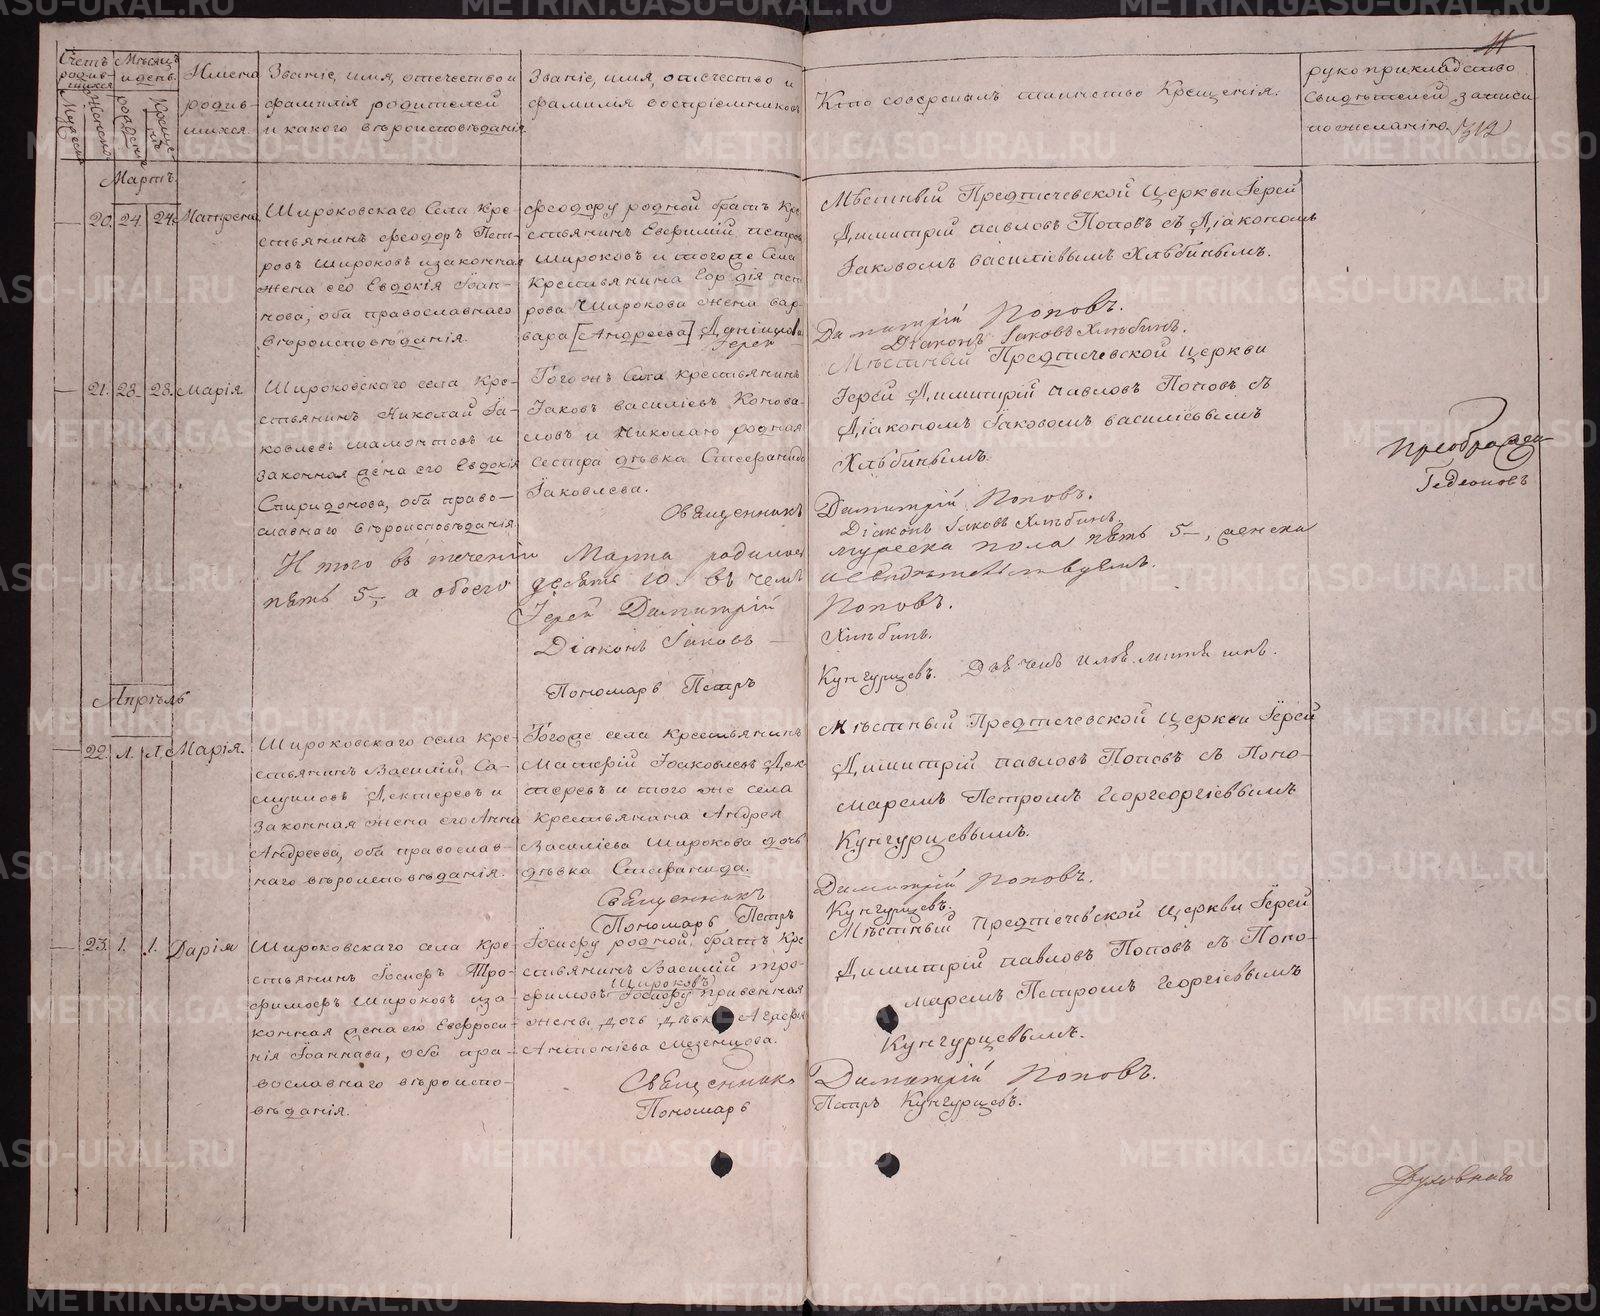 Счетъ родив-
шихся
Мѣсяцъ
и день.
Имена
родив-
шихся.
Мужеска
Женска
рожденія
Креще-
нія
Званіе, имя, отечество и
фамилія родителей
и какого вѣроисповѣданія.
Званіе, имя, отечество и
фамилія воспріемниковъ
Кто совершалъ таинство Крещенія.
рукоприкладство
свидѣтелей записи
по желанію.
11
12
Мартъ.
20. 24 24. Матрена
Широковскаго Села кре-
стьянинъ Феодоръ Пет-
ровъ Широковъ и законная
жена его Евдокія Іоан-
нова, оба православнаго
вѣроисповѣданія.
Феодору родной братъ Кре
стьянинъ Евфимій петровъ
Широковъ и тогоже Села
Крестьянина
рова Широкова жена вар-
вара [Андреева]
Іерей
Мѣстный Предтечевской Церкви Іерей
Димитрій павловъ Поповъ съ Діакономъ
Іаковомъ василіевымъ Хлѣбинымъ.
Димитрій Поповъ.
Діаконъ Іаковъ Хлѣбинъ.
21. 28. 28. Марія
Широковскаго села кре-
стьянинъ Николай Іа-
ковлевъ мамонтовъ и
законная жена его Евдокія
Спиридонова, оба право-
славнаго вѣроисповѣданія.
Тогожъ Села крестьянинъ
Іаковъ василіевъ Конова-
ловъ и Николаю родная
сестра дѣвка Стефанида
Іаковлева.
Священникъ
Мѣстный Предтечевской Церкви
Іерей Димитрій павловъ Поповъ съ
Діакономъ Іаковомъ василіевымъ
Хлѣбинымъ.
Димитрій Поповъ.
Діаконъ Іаковъ Хлѣбинъ.
Преображен
Гедеоновъ
Итого въ теченіи Марта родилось мужеска пола пять 5–, женска
пять 5–, а обоего десять 10. въ чемъ и свидѣтельствуемъ.
Іерей Димитрій Поповъ.
Діаконъ Іаковъ – Хлѣбинъ.
Пономарь Петръ Кунгурцевъ.
Апрѣль
22. 1. 1. Марія.
Широковскаго села кре-
стьянинъ Василій Са-
муиловъ Дектеревъ и
законная жена его Анна
Андреева, оба православ-
наго вѣроисповѣданія.
Тогоже села Крестьянинъ
Матфій Іоаковлевъ Дек-
теревъ и того же села
крестьянина Андрея
Василіева Широкова дочь
дѣвка Стефанида.
Священникъ
Пономарь Петръ
Мѣстный Предтечевской Церкви Іерей
Димитрій павловъ Поповъ съ Поно-
маремъ Петромъ Георгеоргіевымъ
Кунгурцевымъ.
Димитрій Поповъ.
Кунгурцевъ.
23. 1. 1. Дарія
Широковскаго села кре-
стьянинъ Іосифъ Тро-
фимовъ Широковъ и за-
конная жена его Евфроси-
нія Іоаннова, оба пра-
вославнаго вѣроиспо-
вѣданія.
Іосифу родной братъ кре-
стьянинъ Василій тро-
Широковъ
фимовъ Іосифу
жены дочь дѣвка Агафія
Антоніева Мезенцова.
Священникъ
Пономарь
Мѣстный Предтечевской Церкви Іерей
Димитрій павловъ Поповъ съ Поно-
маремъ Петромъ Георгіевымъ
Кунгурцевымъ.
Димитрій Поповъ.
Петръ Кунгурцевъ.
Духовнаго
METRIKI.GASO-URAL.RU